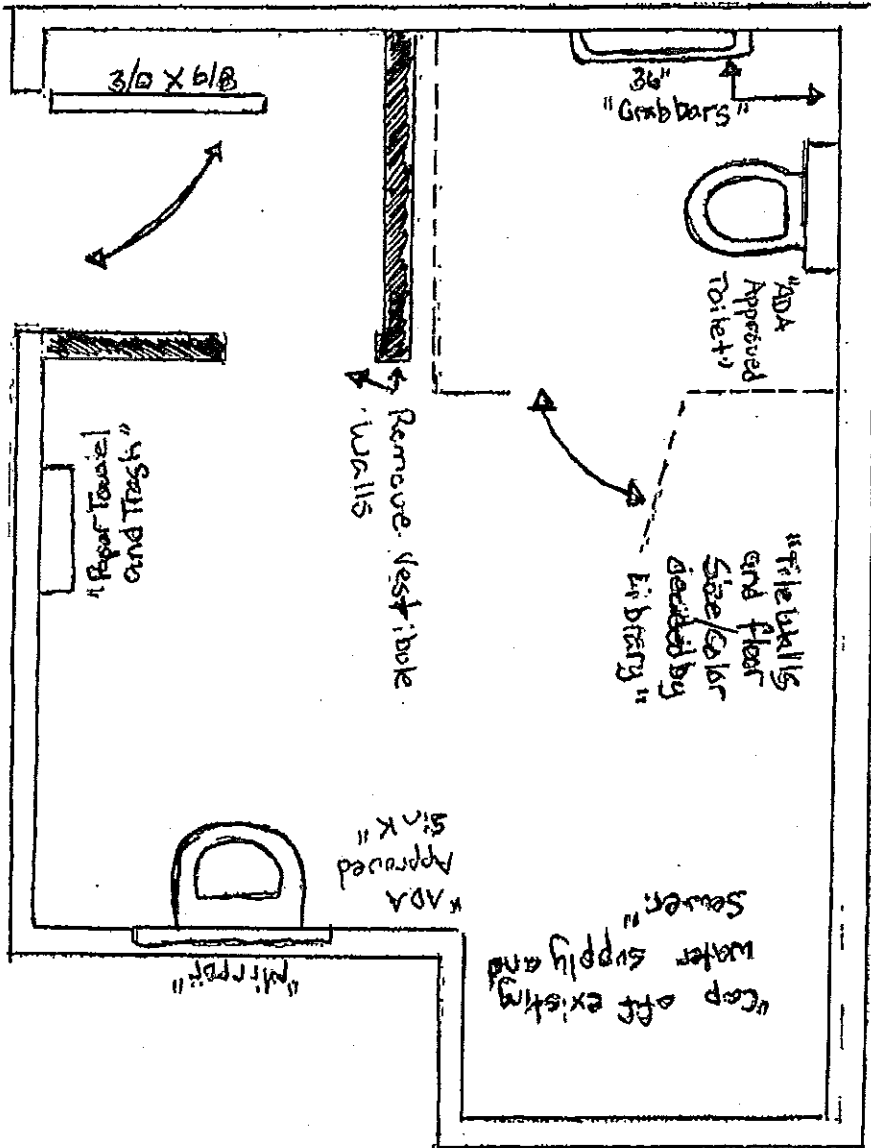 3/0 X 6/8
36"
"Grabbars"
"ADA
Approved
Toilet"
Remove Vestibule
Walls
"Paper Towel
and Trash"
"Tile Walls
and floor
Size/Color
decided by
Library"
"ADA
Approved
Sink"
"Mirror"
"Cap off existing
water supply and
Sewer"